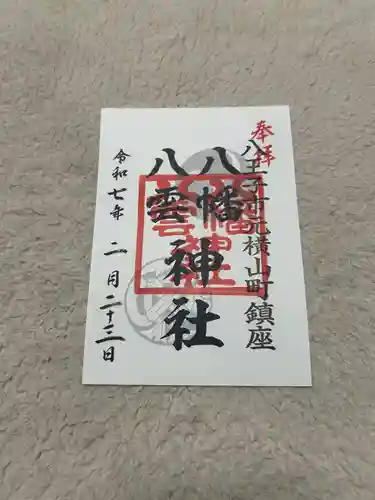 奉拝
八王子市元横山町鎮座
八幡
八雲
神社
令和七年二月二十三日